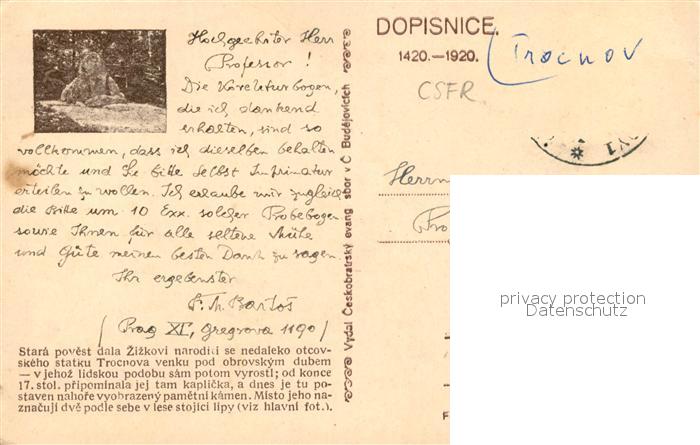 Hochgeehrter Herr
Professor !
Die Korekturbogen,
die ich dankend
erhalten, sind so
vollkommen, dass ich dieselben behalten
möchte und Sie bitte selbst Imprimatur
erteilen zu wollen. Ich erlaube mir zugleich
die Bitte um 10 Exx. solcher Probebogen
sowie Ihnen für alle seltene Mühe
und Güte meinen besten Dank zu sagen.
Ihr ergebenster
F. M. Bartoš
/ Prag XI, Gregrova 1190 /
Stará pověst dala Žižkovi naroditi se nedaleko otcov-
ského statku Trocnova venku pod obrovským dubem
— v jehož lidskou podobu sám potom vyrostl; od konce
17. stol. připomínala jej tam kaplička, a dnes je tu po-
staven nahoře vyobrazený pamětní kámen. Místo jeho na-
značují dvě podle sebe v lese stojící lípy (viz hlavní fot.).
Vydal Českobratrský evang. sbor v Č. Budějovicích
DOPISNICE.
1420.—1920.
Trocnov
CSFR
Herrn
Pro
privacy protection
Datenschutz